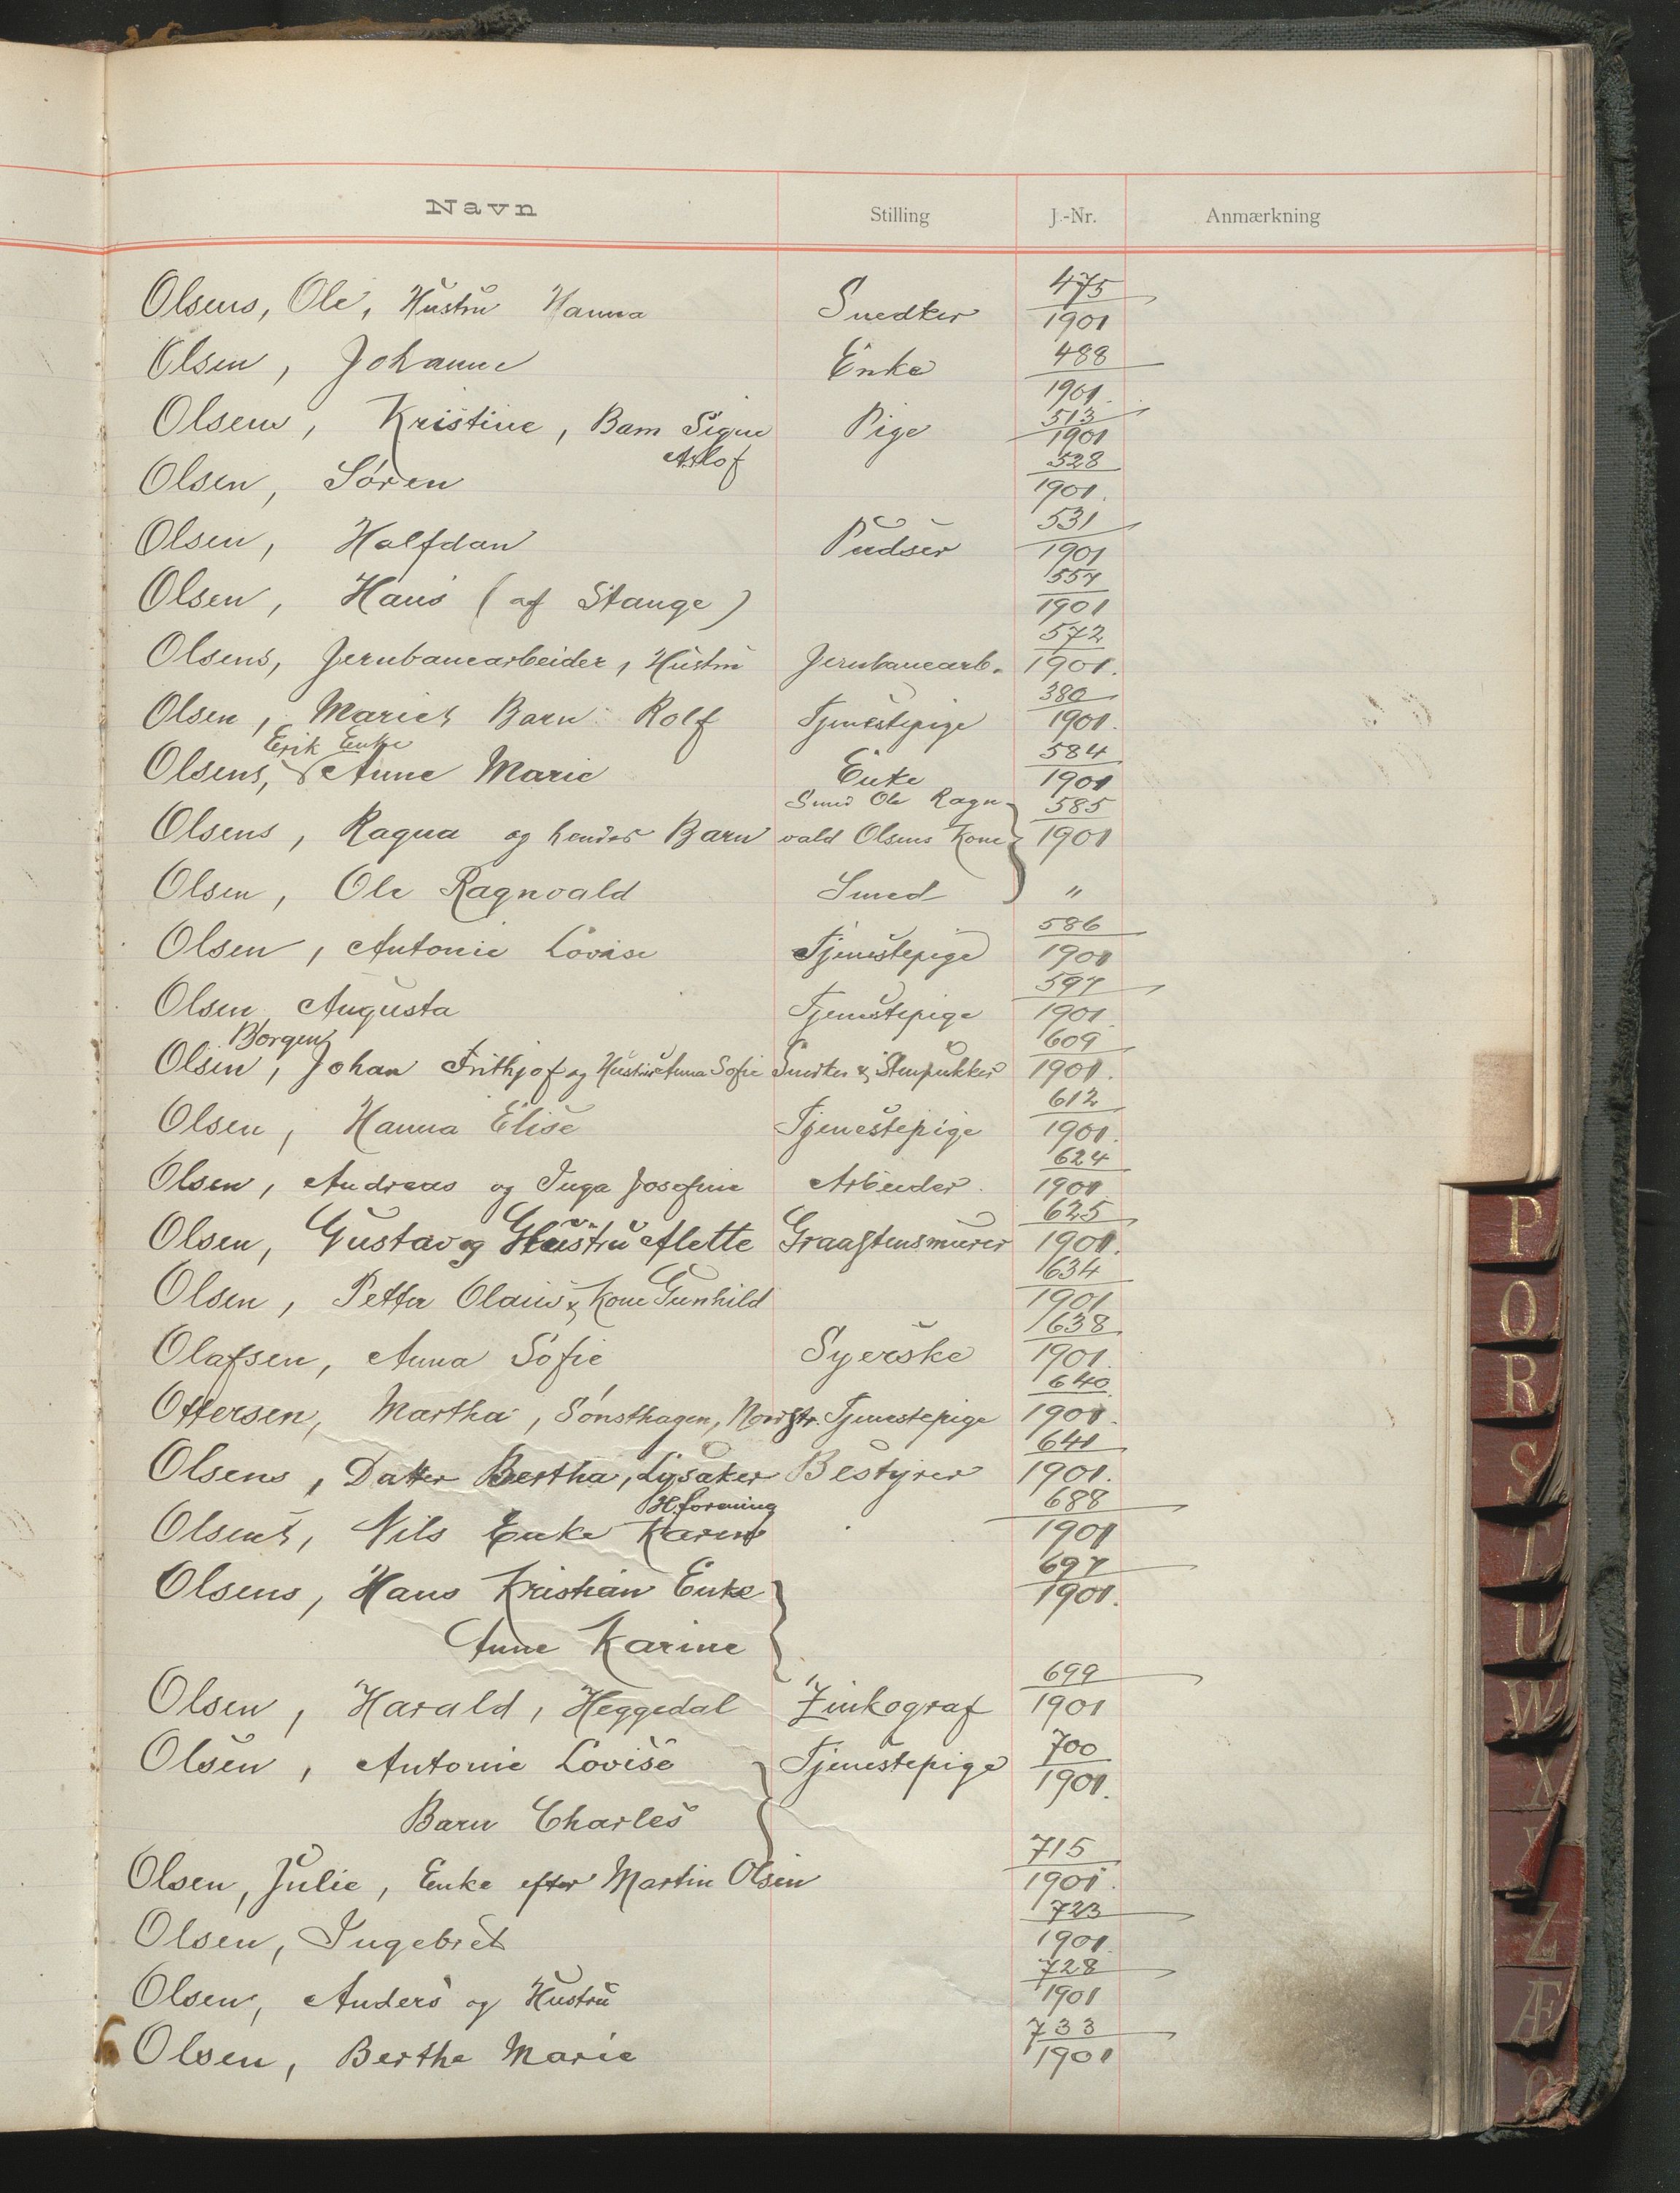 Navn Stilling J.-Nr. Anmærkning
Olsens, Ole, Hustru Hanna Snedker 475/1901
Olsen, Johanne Enke 488/1901.
Olsen, Kristine, Barn Signe Pige 513/1901
Olsen, Sören 528/1901.
Olsen, Halfdan Pudser 531/1901
Olsen, Hans (af Stange) 557/1901
Olsens, Jernbanearbeider, Hustru Jernbanearb. 572/1901.
Olsen, Maries Barn Rolf Tjenestepige 380/1901.
Erik Enke
Olsens, Anne Marie Enke 584/1901
Smed Ole Ragn-
Olsens, Ragna og hendes Barn vald Olsens Kone 585/1901
Olsen, Ole Ragnvald Smed "
Olsen, Antonie Lovise Tjenestepige 586/1901
Olsen Augusta Tjenestepige 597/1901.
Borgen
Olsen, Johan Frithjof og Hustru Anna Sofie Snedker & Stenpukker 609/1901.
Olsen, Hanna Elise Tjenestepige 612/1901.
Olsen, Andreas og Inga Josefine Arbeider. 624/1901
Olsen, Gustav og Hustru Alette Graastensmurer 625/1901.
Olsen, Petter Olaus & Kone Gunhild 634/1901
Olafsen, Anna Sofie Syerske 638/1901.
Ottersen, Martha, Sönsthagen, Nordstr. Tjenestepige 640/1901.
Olsens, Datter Bertha, Lysaker Bestyrer 641/1901.
H.forening
Olsens, Nils Enke Karen 688/1901
Olsens, Hans Kristian Enke 697/1901.
Anne Karine
Olsen, Harald, Heggedal Zinkograf 699/1901
Olsen, Antonie Lovise Tjenestepige 700/1901.
Barn Charles
Olsen, Julie, Enke efter Martin Olsen 715/1901.
Olsen, Ingebret 723/1901.
Olsen, Anders og Hustru 728/1901
Olsen, Berthe Marie 733/1901
P
O
R
S
T
U
W
X
Z
Æ